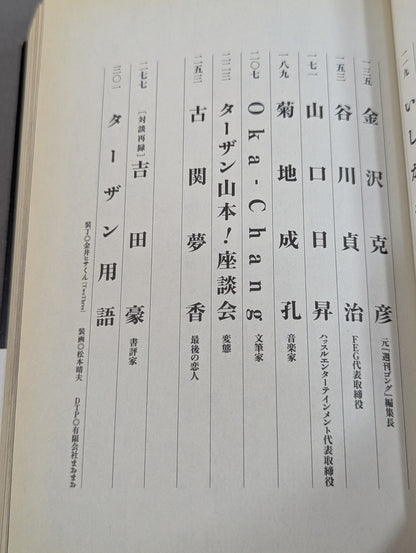 一三五 金沢克彦 元『週刊ゴング』編集長
一五三 谷川貞治 FEG代表取締役
一七一 山口日昇 ハッスルエンターテインメント代表取締役
一八九 菊地成孔 音楽家
二〇七 Oka-Chang 文筆家
二二三 ターザン山本！座談会 変態
二五三 古関夢香 最後の恋人
二七七 ［対談再録］吉田豪 書評家
三〇一 ターザン用語
装丁○金井ヒサくん
装画○松本晴夫
DTP○有限会社まあまあ